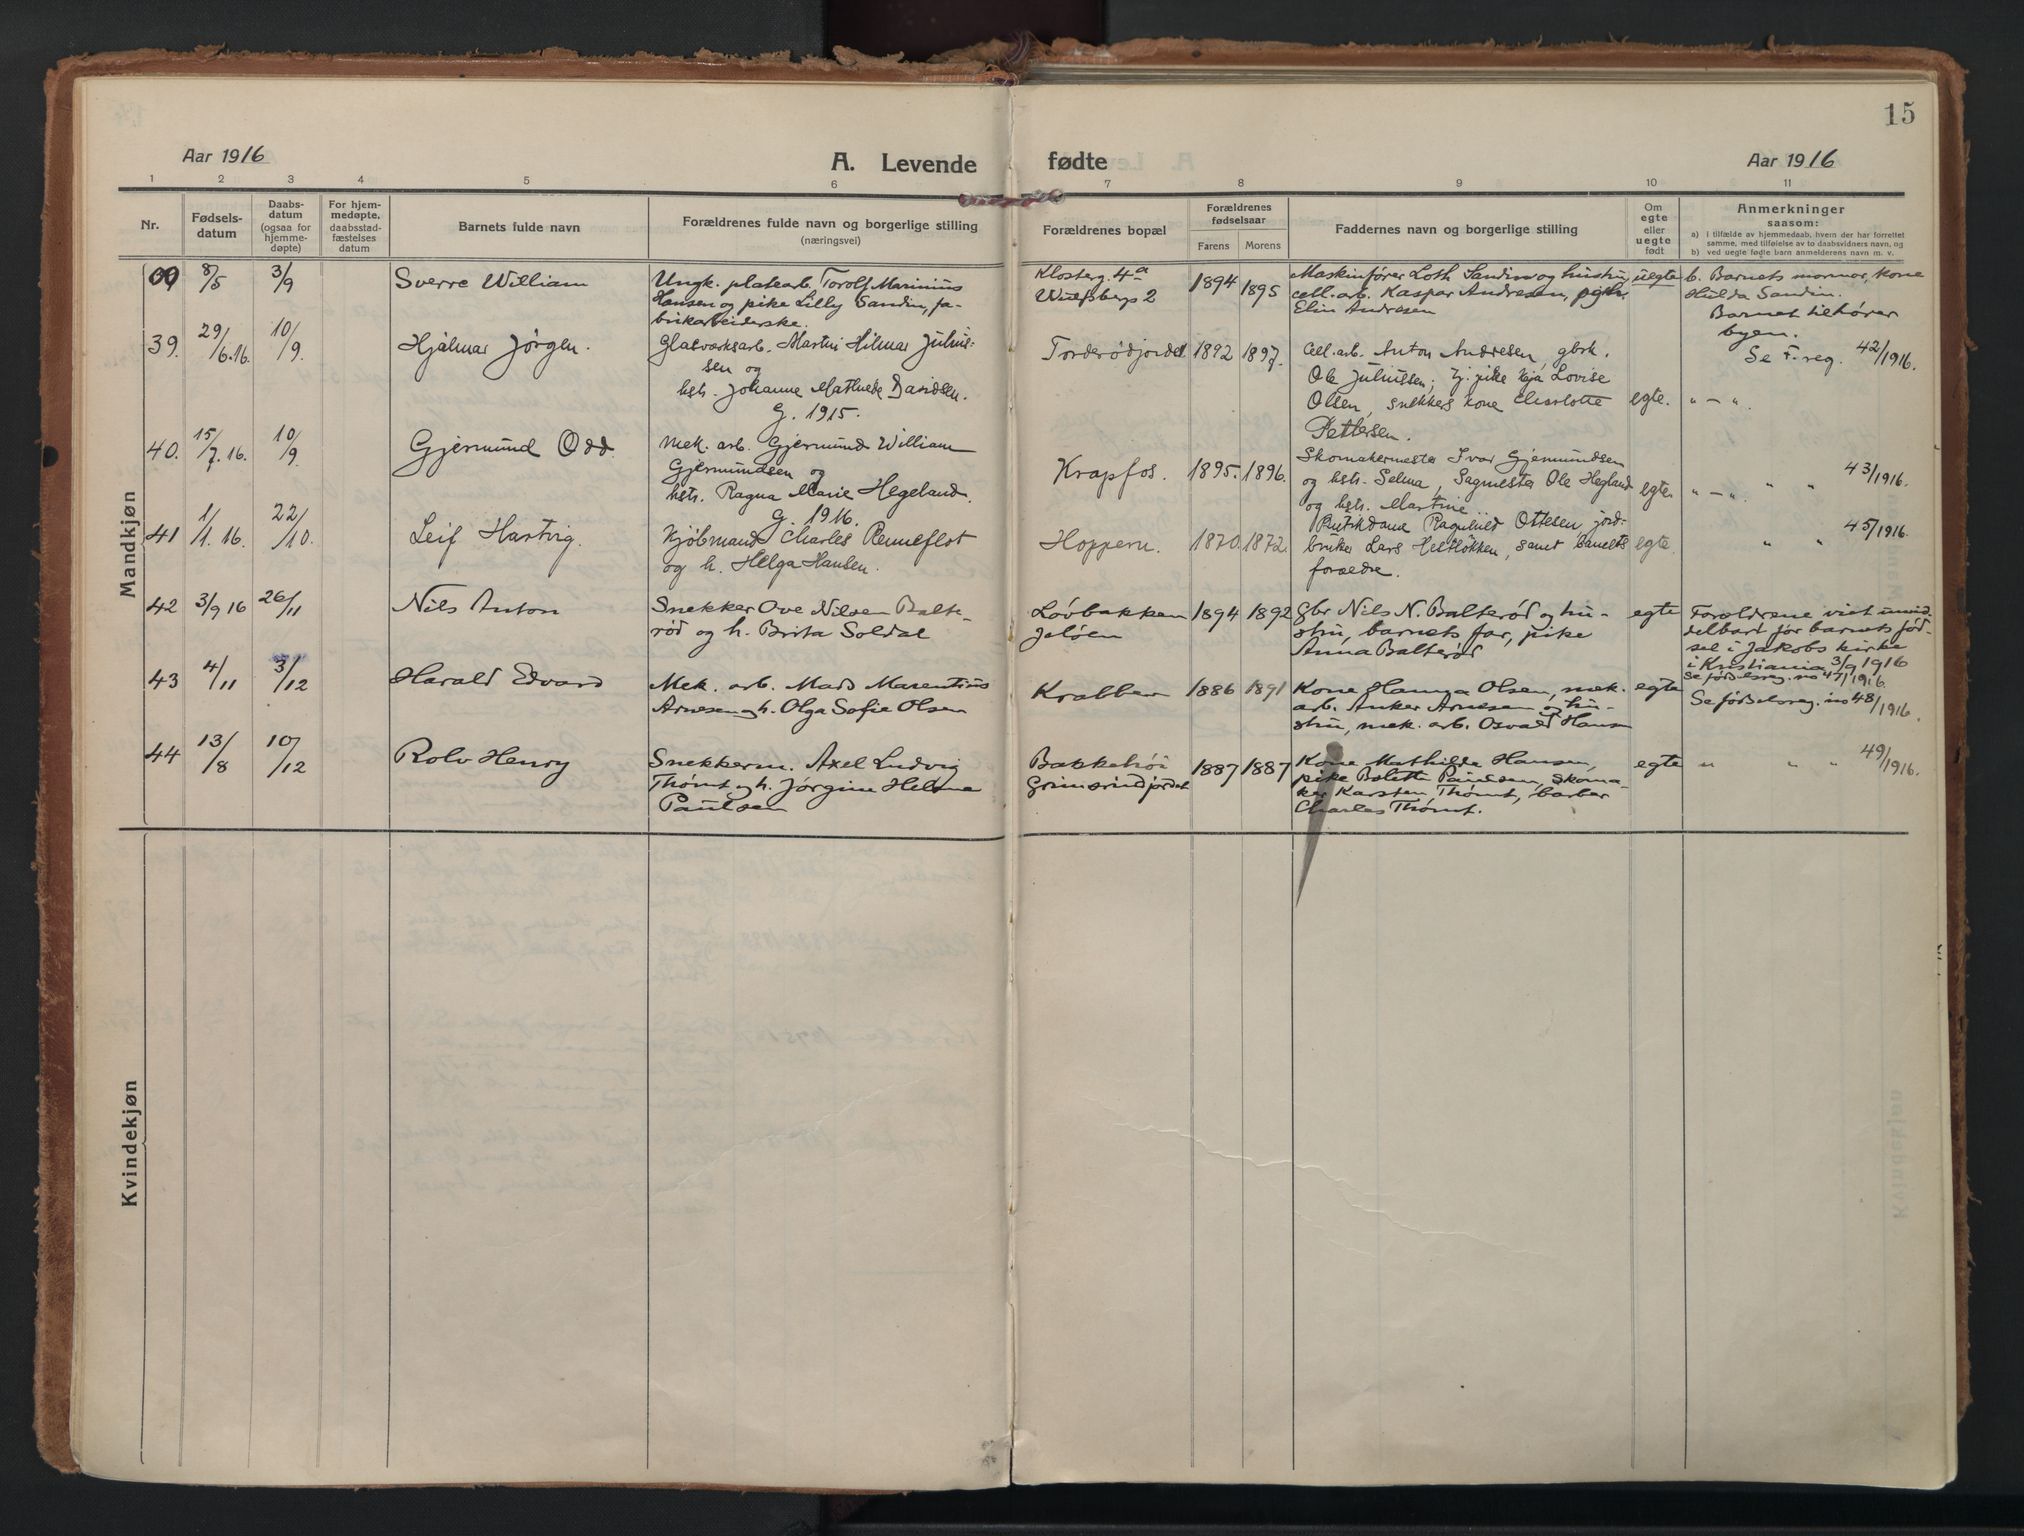 15
Aar 1916
A. Levende fødte
Aar 1916
1 2 3 4 5 6 7 8 9 10 11
Nr.
Fødsels-
datum
Daabs-
datum
(ogsaa for
hjemme-
døpte)
For hjem-
medøpte,
daabsstad-
fæstelses
datum
Barnets fulde navn
Forældrenes fulde navn og borgerlige stilling
(næringsvei)
Forældrenes bopæl
Forældrenes
fødselsaar
Farens Morens
Faddernes navn og borgerlige stilling
Om
egte
eller
uegte
født
Anmerkninger
saasom:
a) I tilfælde av hjemmedaab, hvem der har forrettet
samme, med tilføielse av to daabsvidners navn, og
b) ved uegte fødte barn anmelderens navn m. v.
Mandkjøn
00 8/5 3/9 Sverre William
Ungk. platearb. Torolf Marinius
Hansen og pike Lilly Sandin, fa-
brikarbeiderske.
Klosterg. 4a
Wulfsbergs 2
1894 1895
Maskinfører Loth Sandin og hustru
cell. arb. Kaspar Andresen, pike
Elin Andresen
uegte
b. Barnets mormor, kone
Hulda Sandin.
Barnet tilhører
byen.
39. 29/6.16. 10/9 Hjalmar Jörgen.
Glasværksarb. Martin Hilmar Julius-
sen og
hstr. Johanne Mathilde Davidsen.
G. 1915.
Torderødjordet 1892 1897.
Cell. arb. Anton Andresen, gbrk.
Ole Juliussen; tj. pike Lovise
Olsen, snekkers kone Charlotte
Pettersen.
egte.
Se F. reg. 42/1916.
" — ".
40. 15/7.16. 10/9. Gjermund Odd.
Mek. arb. Gjermund William
Gjermundsen og
hstr. Ragna Marie Hegeland.
G. 1916.
Krapfos. 1895. 1896.
Skomakermester Ivar Gjermundsen
og hstr. Selma, Sagmester Ole Hegland
og hstr. Martine.
egte.
" — ". " " 43/1916.
41 1/1.16. 22/10. Leif Hartvig.
Kjøbmand Charles Renneflot
og h. Helga Hansen.
Hoppern. 1870. 1872.
Butikdame Ragnhild Ottesen, jord-
bruker Lars Hestløkken, samt barnets
forældre.
egte.
" " 45/1916.
42 3/9 16 26/11 Nils Anton
Snekker Ove Nilsen Balte-
rød og h. Brita Soldal
Løvbakken
Jeløen
1894 1892
Gbr Nils N. Balterød og hu-
stru, barnets far, pike
Anna Balterød
egte
Forældrene viet umid-
delbart før barnets fød-
sel i Jakobs kirke
i Kristiania 3/9 1916
Se fødselsreg. no 47/1916.
43 4/11 3/12 Harald Edvard
Mek. arb. Mads Marentius
Arnesen og h. Olga Sofie Olsen
Krabben 1886 1891
Kone Hanna Olsen, mek.
arb. Anker Arnesen og hu-
stru, mek. arb. Osvald Hansen
egte
Se fødselsreg. no 48/1916.
44 13/8 10/12 Rolv Henry
Snekkerm. Axel Ludvig
Thømt og h. Jørgine Helene
Paulsen
Bakkehøi
Grimsrudjordet
1887 1887
Kone Mathilde Hansen,
pike Bolette Paulsen, skoma-
ker Karsten Thømt, barber
Charles Thømt.
egte
" " " 49/1916.
Kvindekjøn